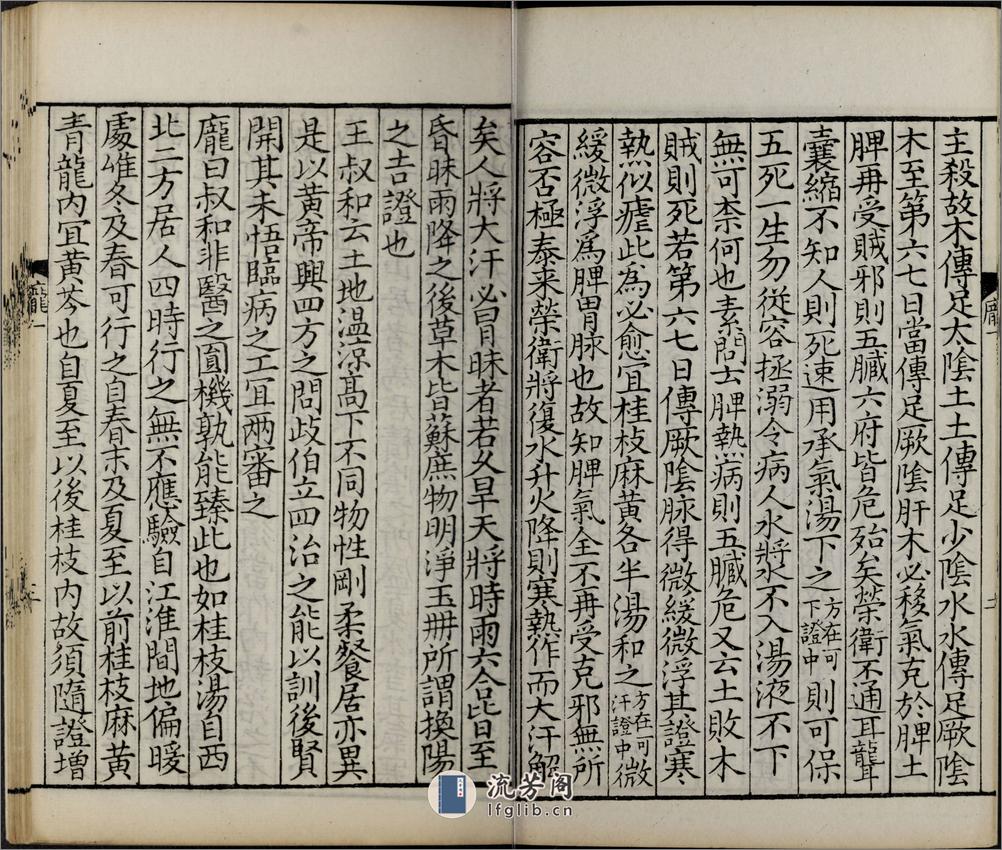 主殺故木傳足太陰土土傳足少陰水水傳足厥陰
木至第六七日當傳足厥陰肝木必移氣克於脾土
脾再受賊邪則五臟六府皆危殆矣榮衛不通耳聾
囊縮不知人則死速用承氣湯下之方在可下證中則可保
五死一生勿從容拯溺令病人水將水不入湯液不下
無可柰何也素問云脾熱病則五臟危又云土敗木
賊則死若第六七日傳厥陰脉得微緩微浮其證寒
熱似瘧此為必愈宜桂枝麻黃各半湯和之方在可汗證中微
緩微浮爲脾胃脉也故知脾氣全不再受克邪無所
容否極泰來榮衛將復水升火降則寒熱作而大汗解
矣人將大汗必冒昧者若久旱天將時雨六合皆至
昏昧雨降之後草木皆蘇庶物明淨玉冊所謂換陽
之吉證也
王叔和云土地温涼髙下不同物性剛柔飡居亦異
是以黃帝興四方之問歧伯立四治之能以訓後賢
開其未悟臨病之工宜兩審之
龐曰叔和非醫之圓機孰能臻此也如桂枝湯自西
北二方居人四時行之無不應驗自江淮間地偏暖
處唯冬及春可行之自春末及夏至以前桂枝麻黃
青龍內宜黃芩也自夏至以後桂枝內故須隨證增
龐一
流芳阁
lfglib.cn